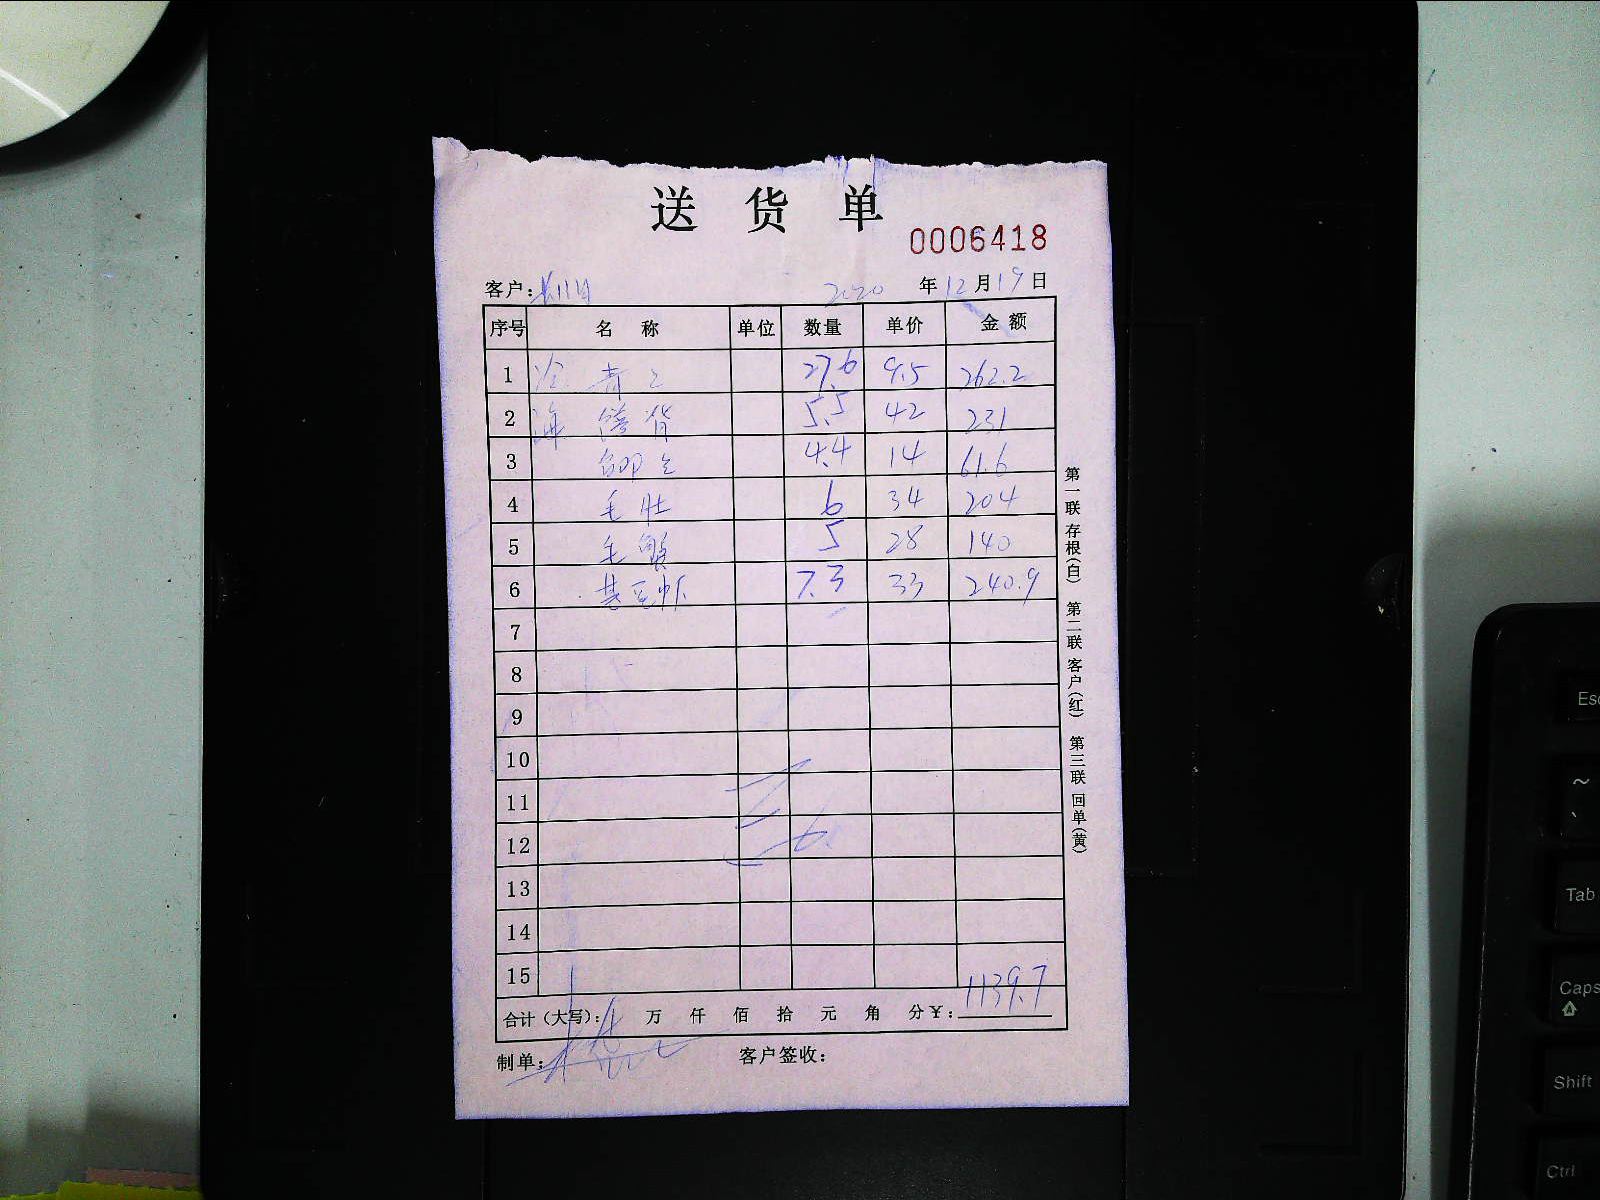 送 货 单
0006418
客户: 2020 年 12 月 19 日
序号 名 称 单位 数量 单价 金 额
1 冷 青 27.6 9.5 262.2
2 海 背 5.5 42 231
3 4.4 14 61.6
4 毛肚 6 34 204
5 毛蟹 5 28 140
6 基 7.3 33 240.9
7
8
9
10
11
12
13
14
15
合计(大写): 万 仟 佰 拾 元 角 分 ¥: 1139.7
制单: 客户签收:
第一联 存根(白) 第二联 客户(红) 第三联 回单(黄)
Esc
~
`
Tab
Caps
Shift
Ctrl